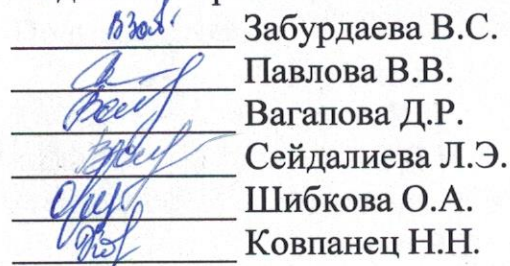 Забурдаева В.С.
Павлова В.В.
Вагапова Д.Р.
Сейдалиева Л.Э.
Шибкова О.А.
Ковпанец Н.Н.